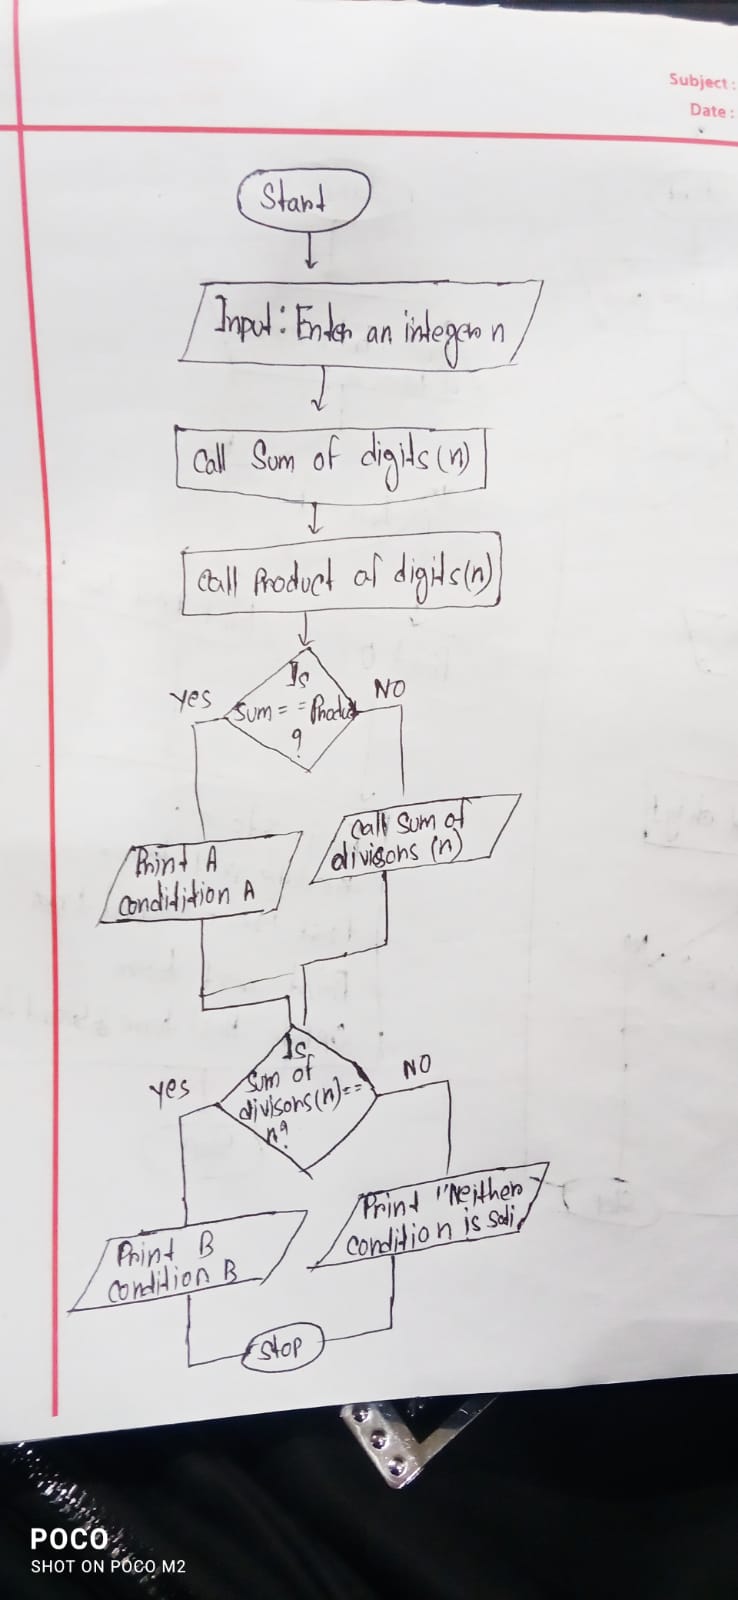 Subject:
Date:
Start
Input: Enter an integer n
Call Sum of digits(n)
Call Product of digits(n)
Is
Sum == Product
?
yes
NO
Print A
condidition A
Call Sum of
divisons (n)
Is
Sum of
divisons(n)==
n?
yes
NO
Print B
condition B
Print "Neither
condition is sati
Stop
POCO
SHOT ON POCO M2